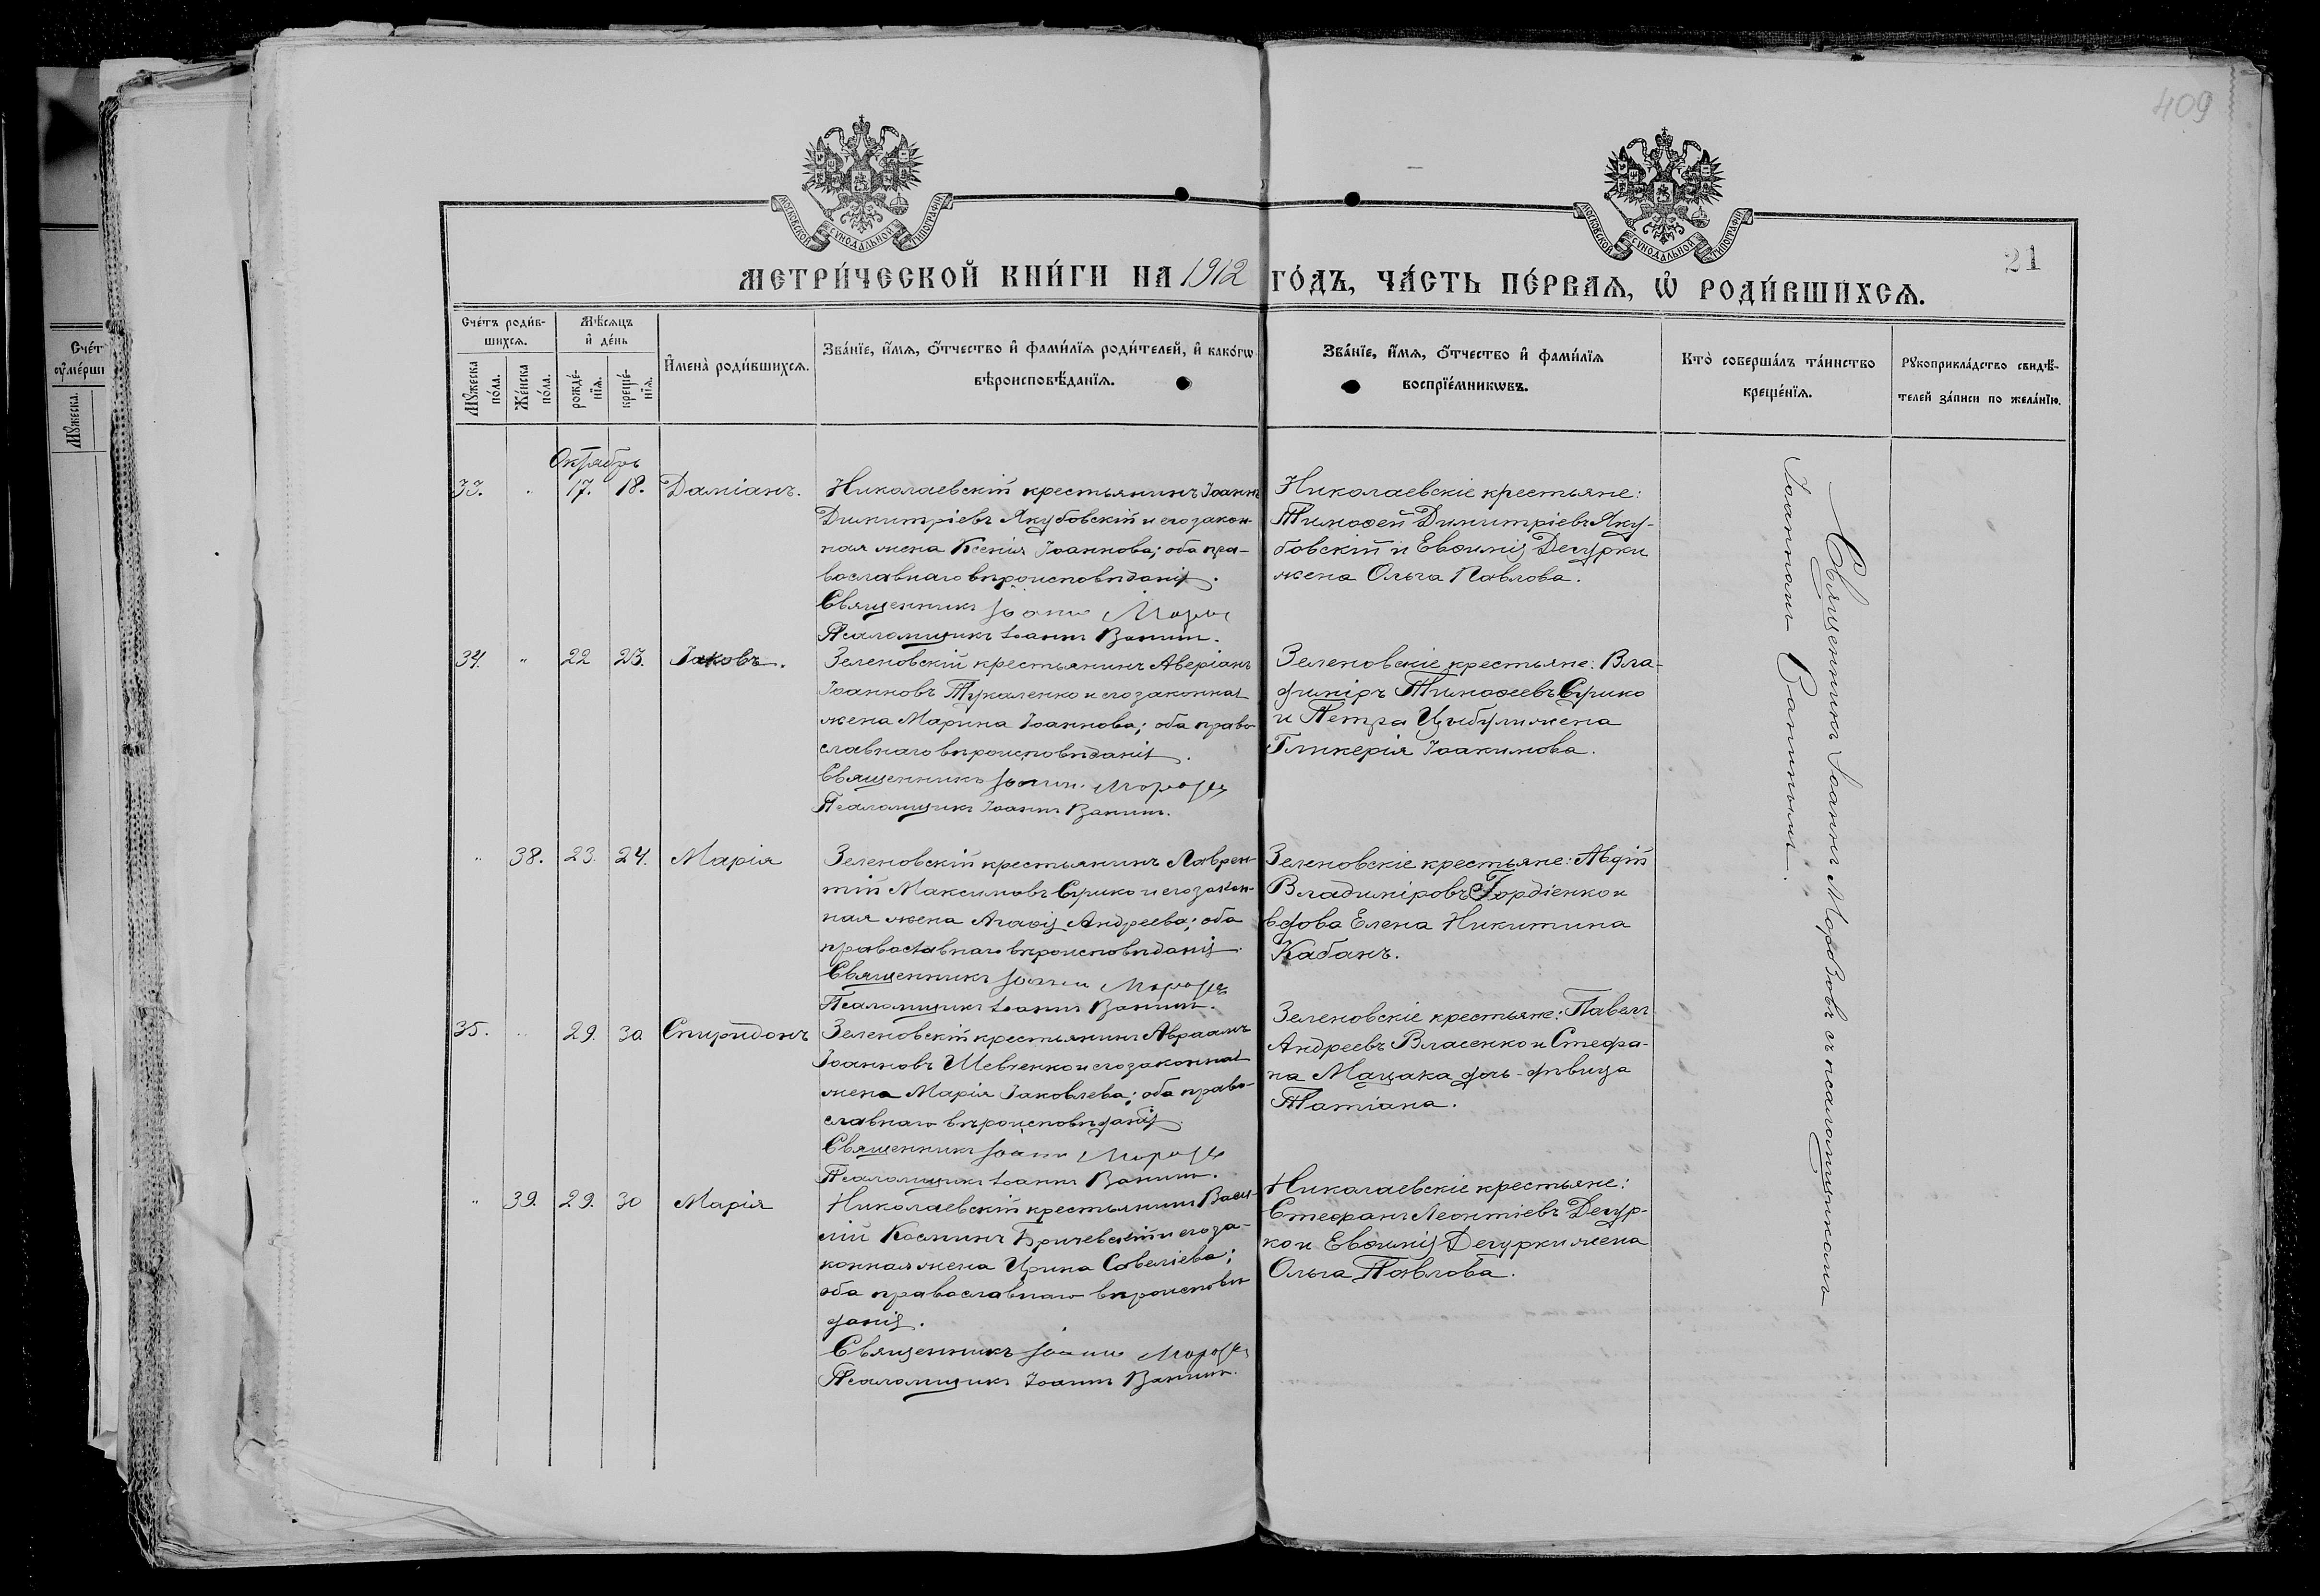 409
МОСКОВСКОЙ СѴНОДАЛЬНОЙ ТИПОГРАФІИ
МОСКОВСКОЙ СѴНОДАЛЬНОЙ ТИПОГРАФІИ
21
МЕТРИ́ЧЕСКОЙ КНИ́ГИ НА 1912 ГО́ДЪ, ЧА́СТЬ ПЕ́РВАѦ, Ѡ҆ РОДИ́ВШИХСѦ.
Сче́тъ роди́в-
шихсѧ.
Мꙋ́жеска по́ла.
Же́нска по́ла.
Мѣ́сѧцъ
и҆ де́нь
рожде́-
нїѧ.
креще́-
нїѧ.
И҆мена̀ роди́вшихсѧ.
Зва́нїе, и҆́мѧ, ѻ҆́тчество и҆ фами́лїѧ роди́телей, и҆ како́гѡ
вѣроисповѣ́данїѧ.
Зва́нїе, и҆́мѧ, ѻ҆́тчество и҆ фами́лїѧ
воспрїе́мникѡвъ.
Кто̀ соверша́лъ та́инство
креще́нїѧ.
Рꙋкоприкла́дство свидѣ́-
телей за́писи по жела́нїю.
Сче́т
ᲂу҆ме́рши
Мꙋ́жеска.
Октябрь
33. " 17. 18. Даміанъ.
Николаевскій крестьянинъ Іоаннъ
Димитріевъ Якубовскій и его закон-
ная жена Ксенія Іоаннова; оба пра-
вославнаго вѣроисповѣданія.
Священникъ Іоаннъ Морозъ
Псаломщикъ Іоаннъ Ванинъ.
Николаевскіе крестьяне:
Тимоѳей Димитріевъ Яку-
бовскій и Евѳимія Дегурки
жена Ольга Павлова.
34. " 22 23. Іаковъ.
Зеленовскій крестьянинъ Аверіанъ
Іоанновъ Тукаленко и его законная
жена Марина Іоаннова; оба право-
славнаго вѣроисповѣданія.
Священникъ Іоаннъ Морозъ
Псаломщикъ Іоаннъ Ванинъ.
Зеленовскіе крестьяне: Вла-
диміръ Тимоѳеевъ Сушко
и Петра Цыбули жена
Гликерія Іоакимова.
" 38. 23. 24. Марія
Зеленовскій крестьянинъ Лаврен-
тій Максимовъ Сушко и его закон-
ная жена Агаѳія Андреева; оба
православнаго вѣроисповѣданія.
Священникъ Іоаннъ Морозъ
Псаломщикъ Іоаннъ Ванинъ.
Зеленовскіе крестьяне: Авдій
Владиміровъ Гордіенко и
вдова Елена Никитина
Кабанъ.
35. " 29. 30. Спиридонъ
Зеленовскій крестьянинъ Авраамъ
Іоанновъ Шевченко и его законная
жена Марія Іаковлева; оба право-
славнаго вѣроисповѣданія.
Священникъ Іоаннъ Морозъ
Псаломщикъ Іоаннъ Ванинъ.
Зеленовскіе крестьяне: Павелъ
Андреевъ Власенко и Стефа-
на Мацака дочь-дѣвица
Татіана.
" 39. 29. 30 Марія
Николаевскій крестьянинъ Васи-
лій Косминъ Бричевскій и его за-
конная жена Ирина Савеліева;
оба православнаго вѣроисповѣ
данія.
Священникъ Іоаннъ Морозъ
Псаломщикъ Іоаннъ Ванинъ.
Николаевскіе крестьяне:
Стефанъ Леонтіевъ Дегур-
ко и Евѳимія Дегурки жена
Ольга Павлова.
Священникъ Іоаннъ Морозовъ съ псаломщикомъ
Іоанномъ Ванинымъ.